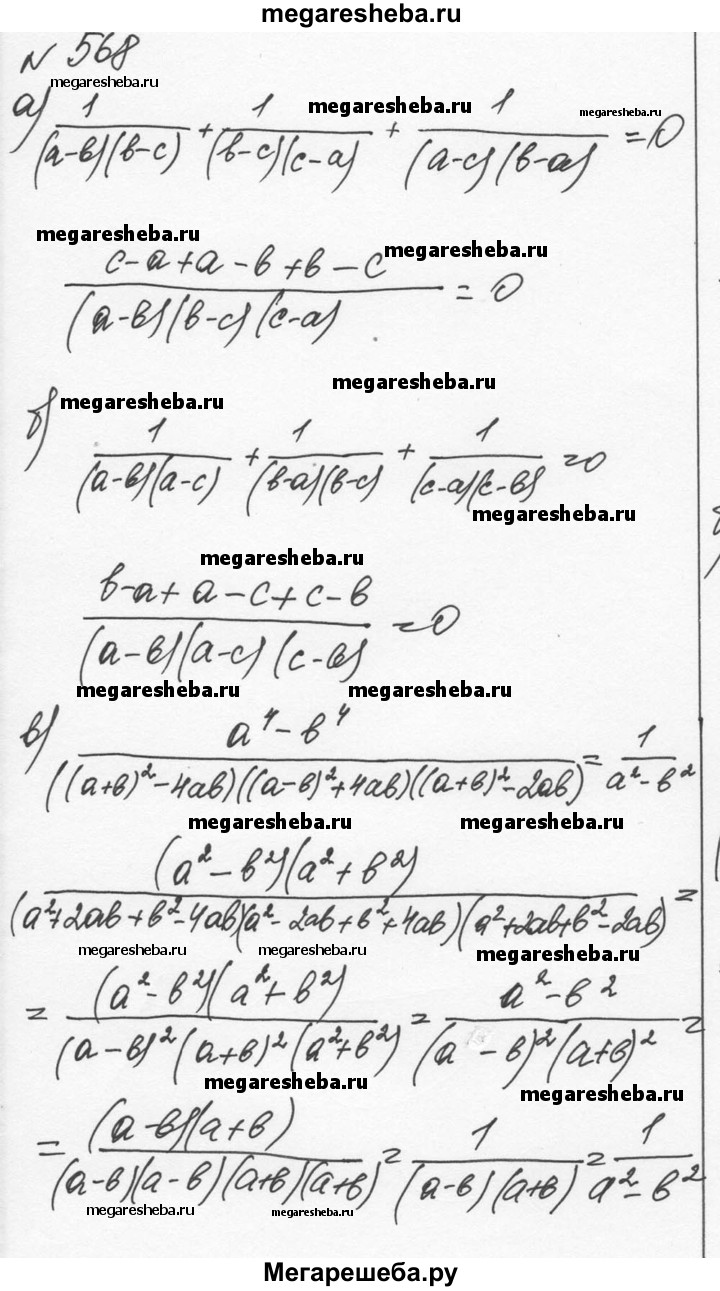 megaresheba.ru
№ 568
megaresheba.ru megaresheba.ru megaresheba.ru
а) 1/((a-b)(b-c)) + 1/((b-c)(c-a)) + 1/((a-c)(b-a)) = 0
megaresheba.ru megaresheba.ru
(c-a+a-b+b-c)/((a-b)(b-c)(c-a)) = 0
megaresheba.ru
megaresheba.ru
б) 1/((a-b)(a-c)) + 1/((b-a)(b-c)) + 1/((c-a)(c-b)) = 0
megaresheba.ru
megaresheba.ru
(b-a+a-c+c-b)/((a-b)(a-c)(c-b)) = 0
megaresheba.ru megaresheba.ru
в) (a⁴-b⁴)/(((a+b)²-4ab)((a-b)²+4ab)((a+b)²-2ab)) = 1/(a²-b²)
megaresheba.ru megaresheba.ru
(a²-b²)(a²+b²)/((a²+2ab+b²-4ab)(a²-2ab+b²+4ab)(a²+2ab+b²-2ab)) =
megaresheba.ru megaresheba.ru megaresheba.ru
= (a²-b²)(a²+b²)/((a-b)²(a+b)²(a²+b²)) = (a²-b²)/((a-b)²(a+b)²) =
megaresheba.ru megaresheba.ru
= (a-b)(a+b)/((a-b)(a-b)(a+b)(a+b)) = 1/((a-b)(a+b)) = 1/(a²-b²)
megaresheba.ru megaresheba.ru
Мегарешеба.ру